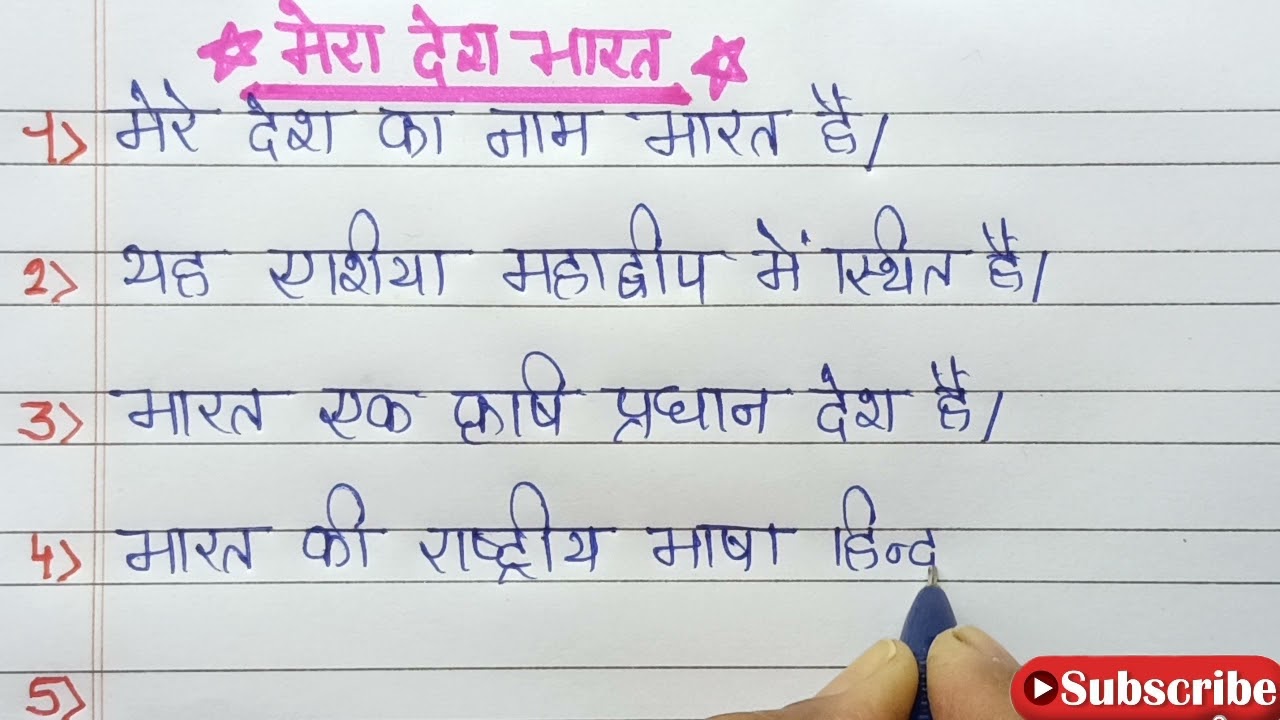 मेरा देश भारत
1> मेरे देश का नाम भारत है।
2> यह एशीया महाद्वीप में स्थित है।
3> भारत एक कृषि प्रधान देश है।
4> भारत की राष्ट्रीय भाषा हिन्द
5>
Subscribe